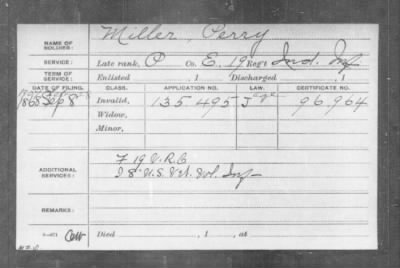 NAME OF SOLDIER: Miller, Perry
SERVICE: Late rank, P Co. E, 19 Reg't Ind. Inf
TERM OF SERVICE: Enlisted , 1 Discharged , 1
DATE OF FILING. CLASS. APPLICATION NO. LAW. CERTIFICATE NO.
1868 Sep 8 Invalid, 135495 96964
Widow,
Minor,
ADDITIONAL SERVICES: F 19 V.R.C
I 8" U.S. Vet. Vol. Inf
REMARKS:
Died , 1 , at